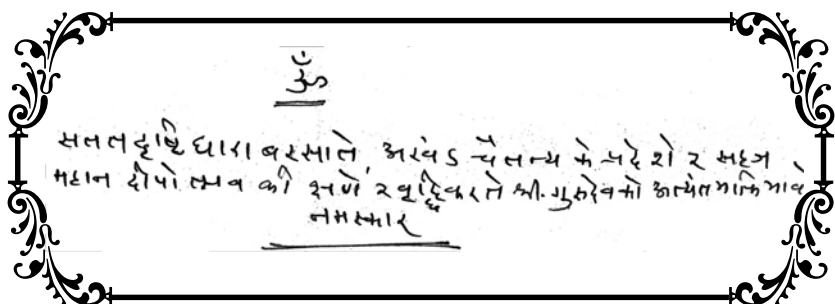 ॐ
सततदृष्टि धारा बरसाते, अखंड चैतन्य के प्रदेशे २ सहज
महान दीपोत्सव की क्षणे २ वृद्धि करते श्री. गुरुदेवको अत्यंत भक्ति भावे
नमस्कार